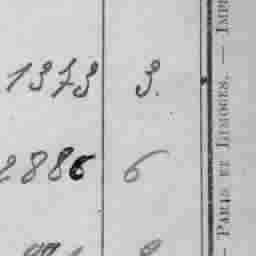 1373 3.
2886 6
— PARIS ET LIMOGES. — IMP